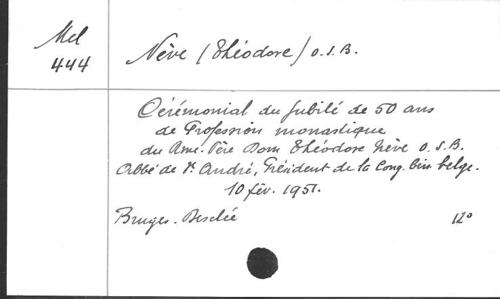 Mel
444
Nève (Théodore) O.S.B.
Cérémonial du Jubilé de 50 ans
de Profession monastique
du Rme. Père Dom Théodore Nève O.S.B.
Abbé de St. André, Président de la Cong. bén. belge.
10 fév. 1951.
Bruges. Desclée
12°